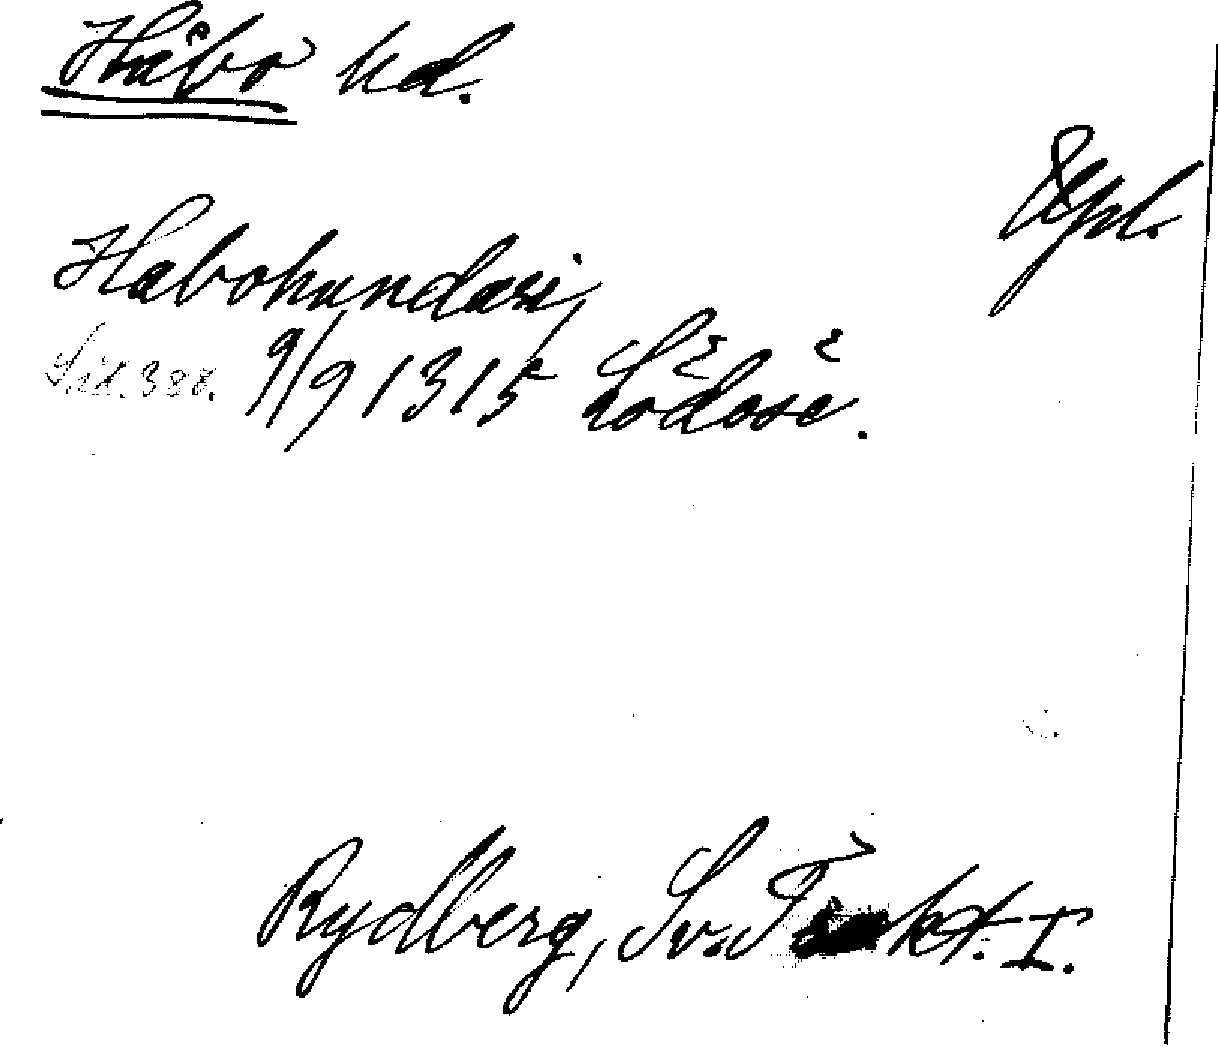 Håbo hd.
Uppl.
Habohundæri,
S. id. 388. 9/9 1315 Lödöse.
Rydberg, Sv. Trakt. I.